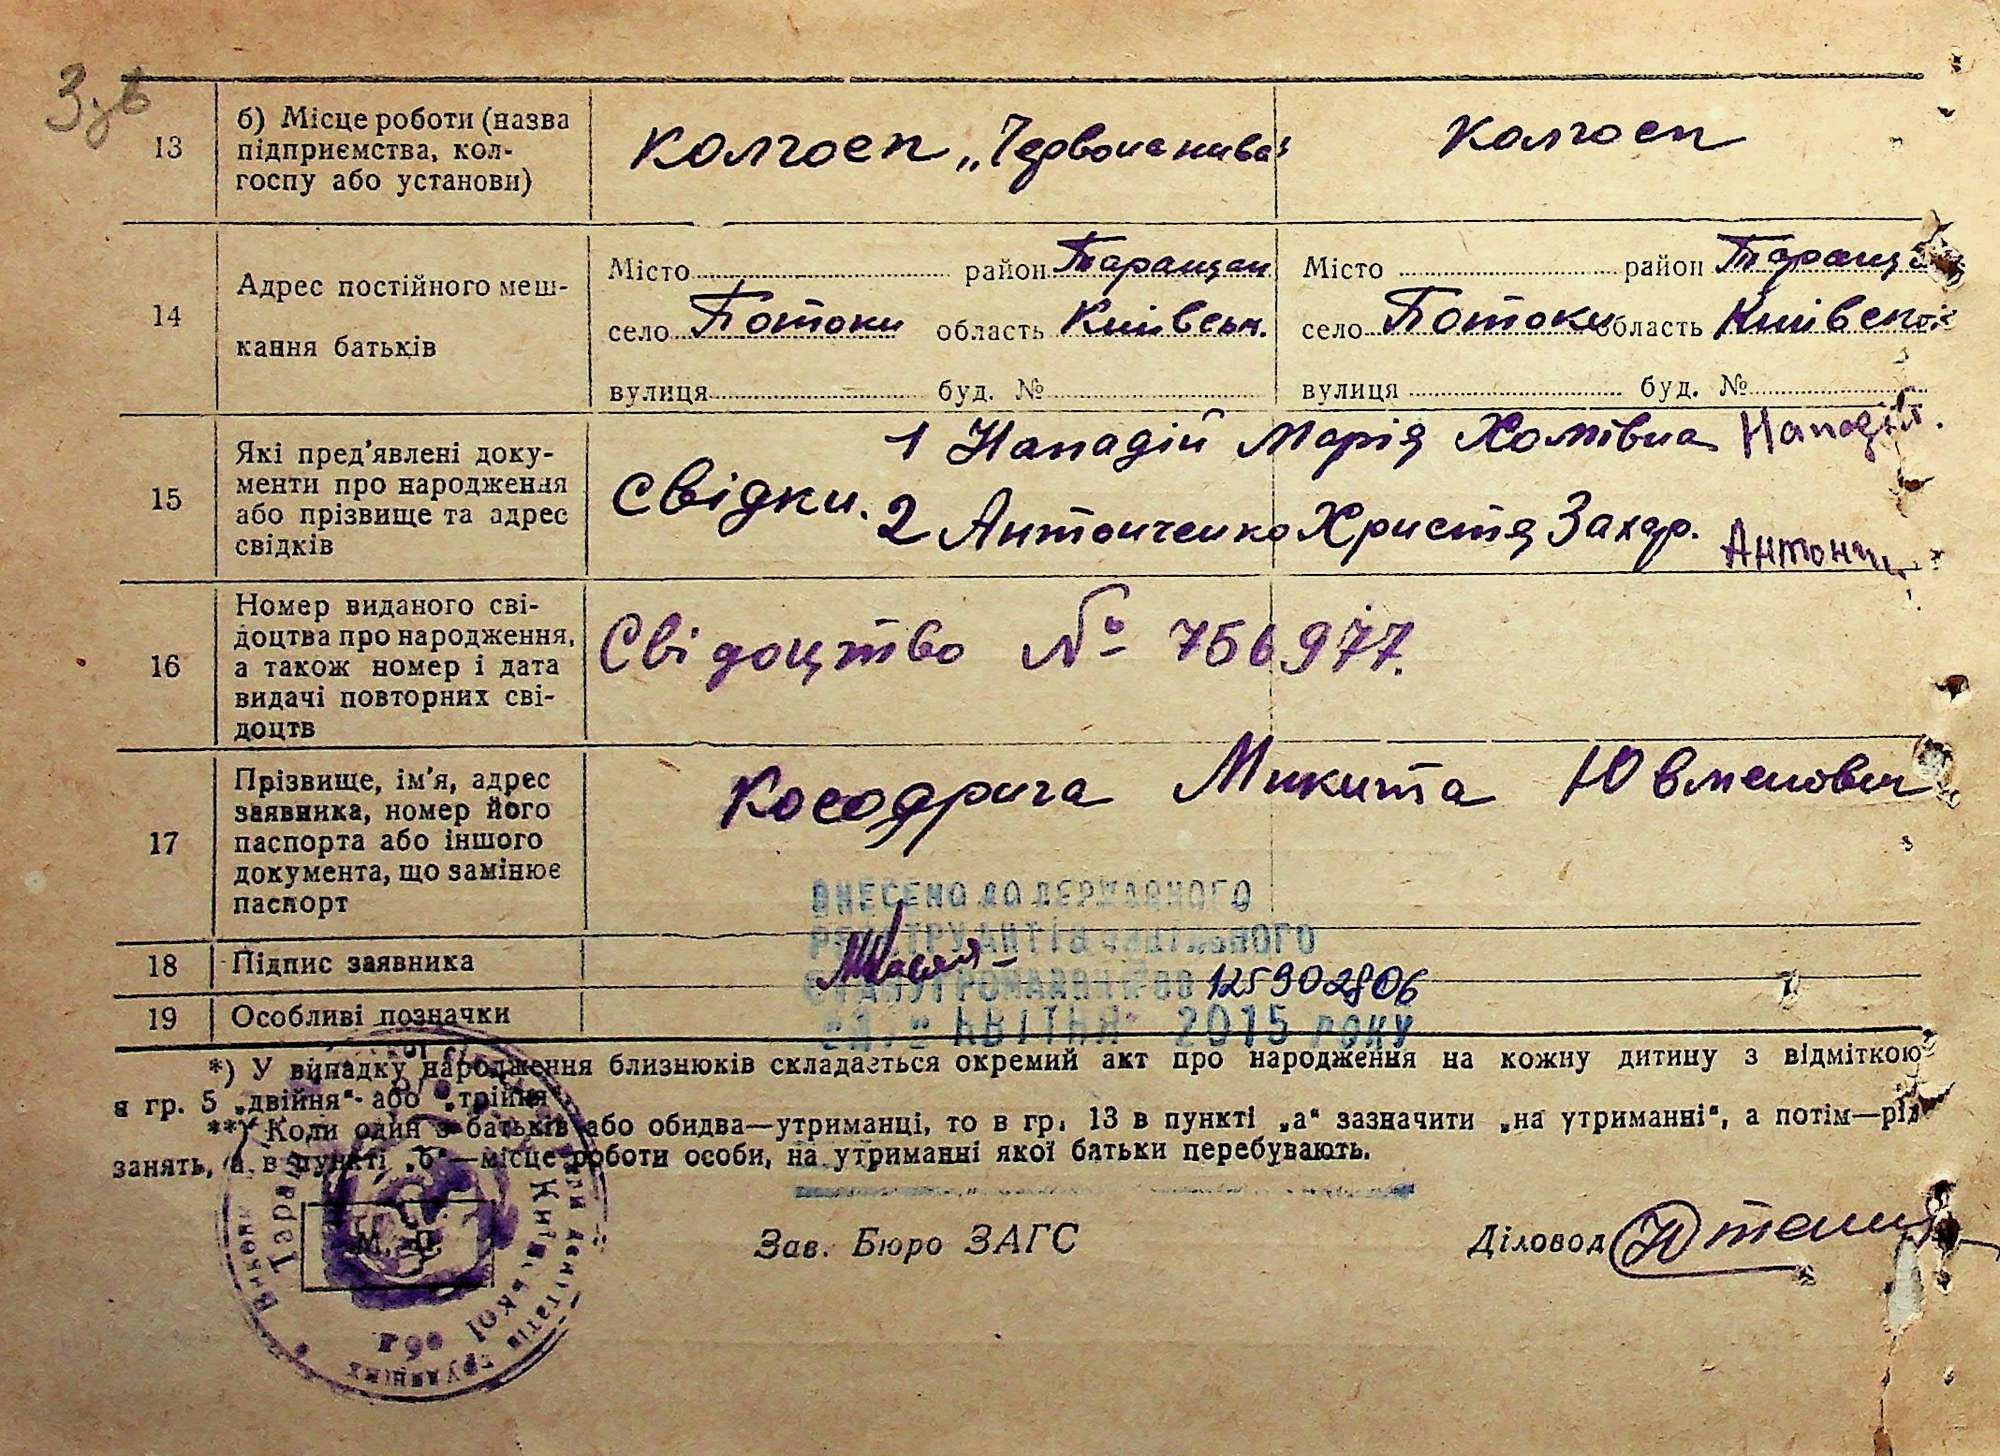 13
б) Місце роботи (назва
підприємства, кол-
госпу або установи)
колгосп „Червона нива“
колгосп
14
Адрес постійного меш-
кання батьків
Місто район Таращан
село Потоки область Київськ.
вулиця буд. №
Місто район Таращ
село Потоки область Київської
вулиця буд. №
15
Які пред'явлені доку-
менти про народження
або прізвище та адрес
свідків
свідки.
1 Нападій Марія Хомівна Нападій.
2 Антонченко Христя Захар. Антонч
16
Номер виданого сві-
доцтва про народження,
а також номер і дата
видачі повторних сві-
доцтв
Свідоцтво № 756977.
17
Прізвище, ім'я, адрес
заявника, номер його
паспорта або іншого
документа, що замінює
паспорт
Косодрига Микита Ювменович
ВНЕСЕНО ДО ДЕРЖАВНОГО
РЕЄСТРУ АКТІВ ЦИВІЛЬНОГО
СТАНУ ГРОМАДЯН ЗА 125902806
КВІТНЯ 2015 РОКУ
18
Підпис заявника
19
Особливі позначки
*) У випадку народження близнюків складається окремий акт про народження на кожну дитину з відміткою
в гр. 5 „двійня“ або „трійня“
**) Коли один з батьків або обидва—утриманці, то в гр. 13 в пункті „а“ зазначити „на утриманні“, а потім—рід
занять, а в пункті „б“—місце роботи особи, на утриманні якої батьки перебувають.
М. П.
Зав. Бюро ЗАГС
Діловод